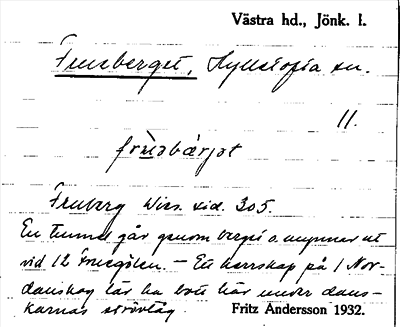 Västra hd., Jönk. l.
Fruberget, Hyllstofta sn.
11.
frùɜbærjət
Fruberg Wies. sid. 305.
En tunnel går genom berget o. mynnar ut
vid 12 Fruegölen. – Ett herrskap på 1 Nor-
danskog lär ha bott här under dans-
karnas ströveåg.
Fritz Andersson 1932.